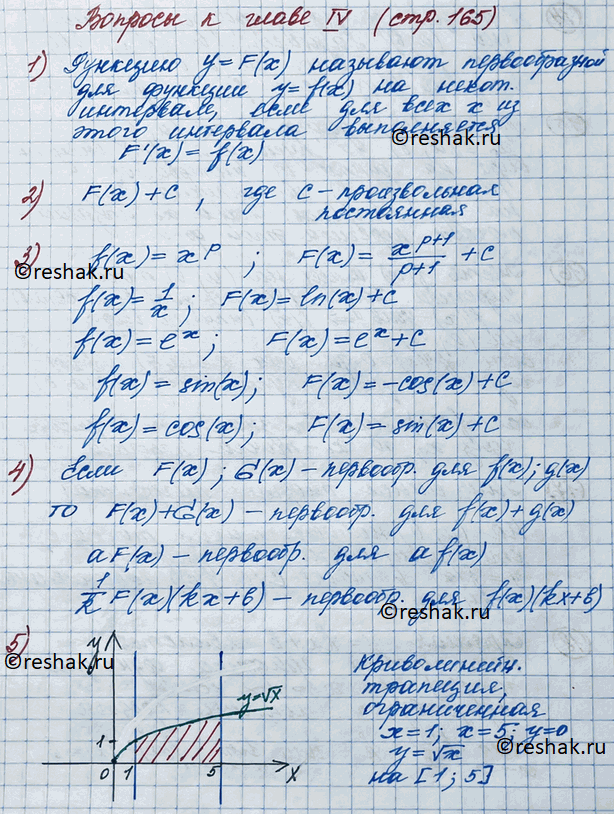 Вопросы к главе IV (стр. 165)
1) Функцию y=F(x) называют первообразной
для функции y=f(x) на некот.
интервале, если для всех x из
этого интервала выполняется
F'(x)=f(x)
©reshak.ru
2) F(x)+C, где C – произвольная
постоянная
3) f(x)=x^p; F(x)=\frac{x^{p+1}}{p+1}+C
©reshak.ru
©reshak.ru
f(x)=\frac{1}{x}; F(x)=ln(x)+C
f(x)=e^x; F(x)=e^x+C
f(x)=sin(x); F(x)=-cos(x)+C
f(x)=cos(x); F(x)=sin(x)+C
4) Если F(x); G(x) – первообр. для f(x); g(x)
то F(x)+G(x) – первообр. для f(x)+g(x)
aF(x) – первообр. для af(x)
\frac{1}{k}F(x)(kx+b) – первообр. для f(x)(kx+b)
©reshak.ru
5)
©reshak.ru
y
y=√x
1
0 1 5 x
Криволинейн.
трапеция,
ограниченная
x=1; x=5; y=0
y=√x
на [1; 5]